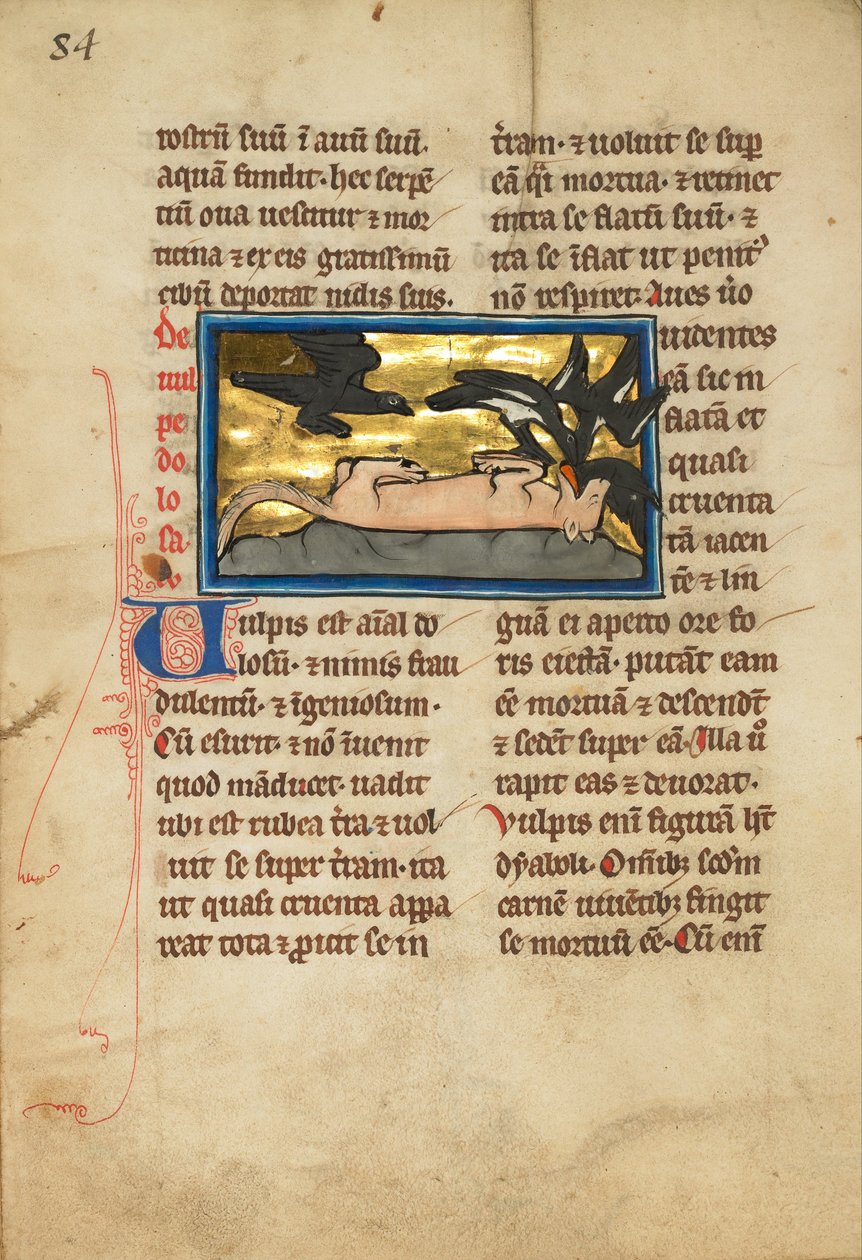 84
rostrū suū ī anū suū.
aquā fundit. hec serpē
tiū oua uescitur ⁊ mor
ticina ⁊ ex eis gratissimū
cibū deportat nidis suis.
De
uul
pe
do
lo
sa.
Uulpis est aīal do
losū. ⁊ nimis frau
dulentū. ⁊ īgeniosum.
Cū esurit. ⁊ nō īuenit
quod māducet. uadit
ubi est rubea t̄ra ⁊ uol
uit se super t̄ram. ita
ut quasi cruenta appa
reat tota ⁊ ꝓicit se in
t̄ram. ⁊ uoluit se suꝑ
eā q̄i mortua. ⁊ retinet
intra se flatū suū. ⁊
ita se īflat ut penit᷒
nō respiret. Aues u̾o
uidentes
eā sic in
flatā et
quasi
cruenta
tā iacen
tē ⁊ lin
guā ei aperto ore fo
ris eiectā. putāt eam
eē mortuā ⁊ descendt̄
⁊ sedēt super eā. Illa uͦ
rapit eas ⁊ deuorat.
Vulpis enī figurā hn̄t
dyaboli. Omībꝫ scd̄m
carnē uiuētibꝫ fingit
se mortuū eē. Cū enī